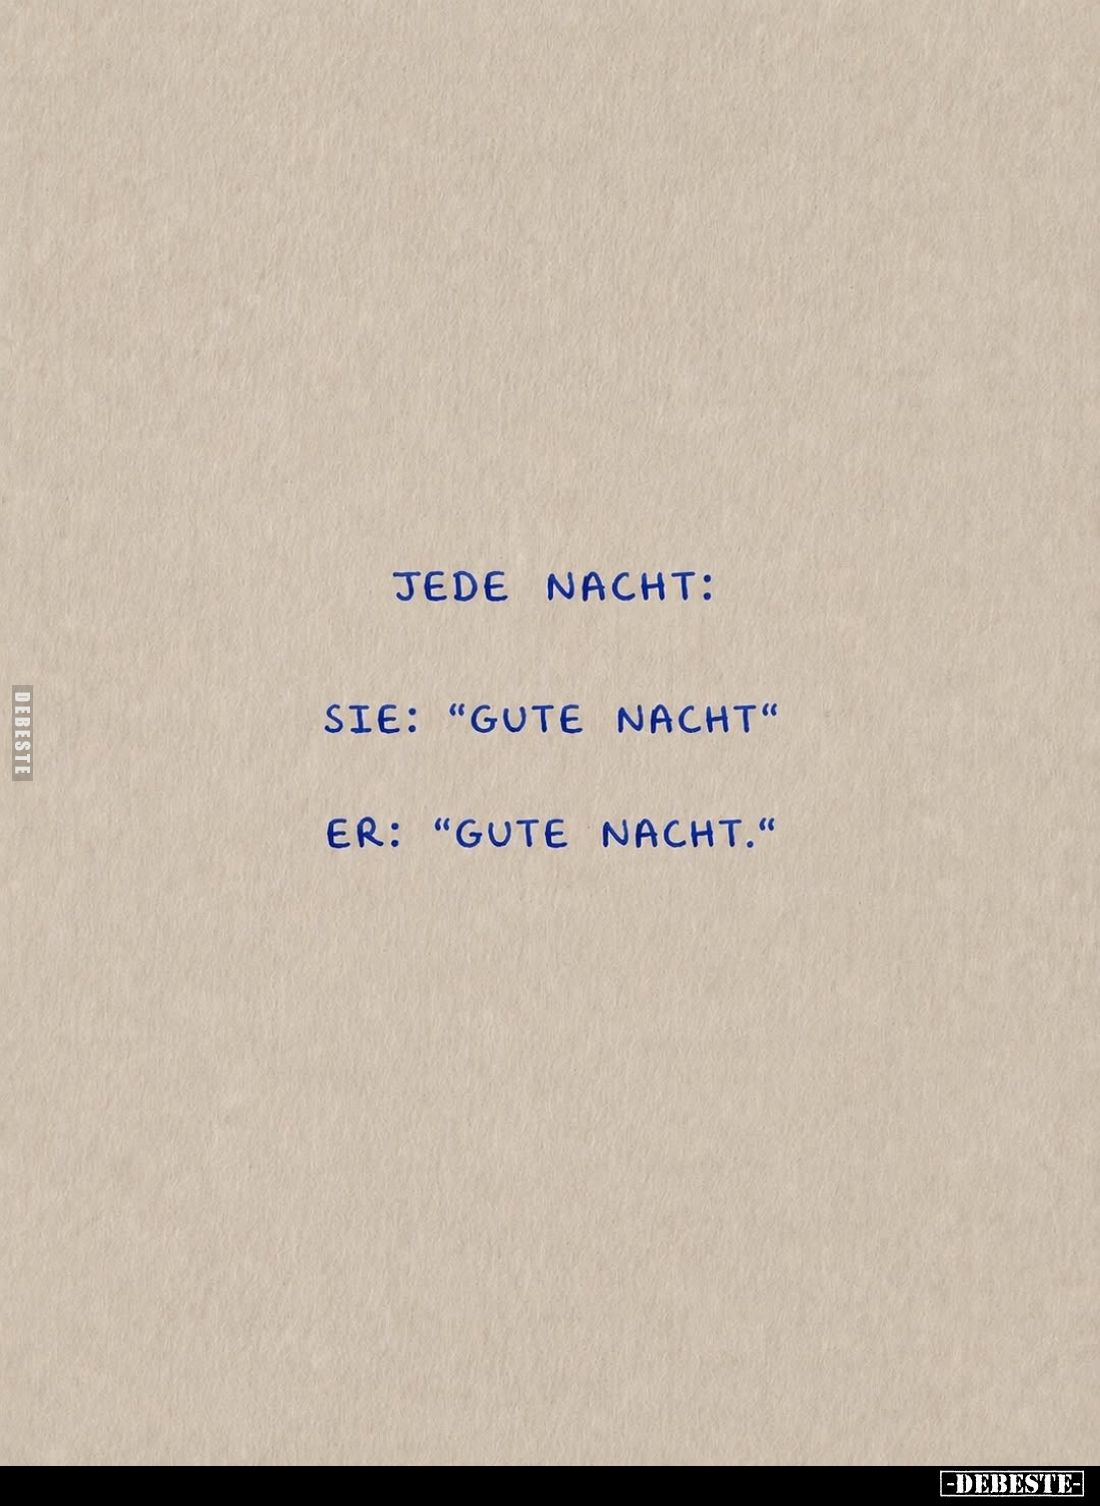 JEDE NACHT:
SIE: “GUTE NACHT“
ER: “GUTE NACHT.“
DEBESTE
-DEBESTE-